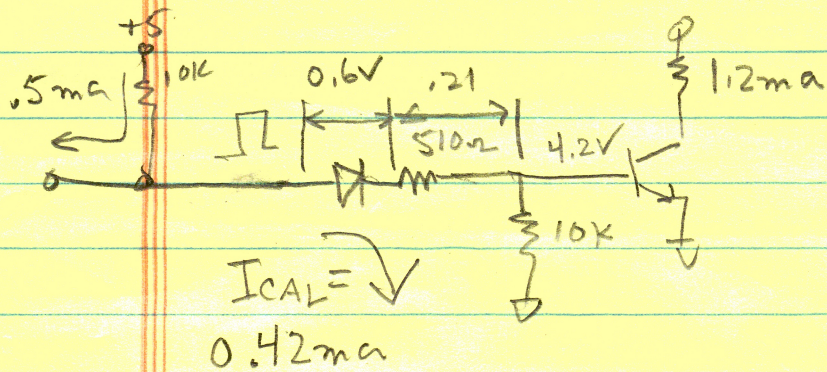 +5
10K
.5ma
0.6V
.21
510Ω
4.2V
1.2ma
10K
ICAL=
0.42ma